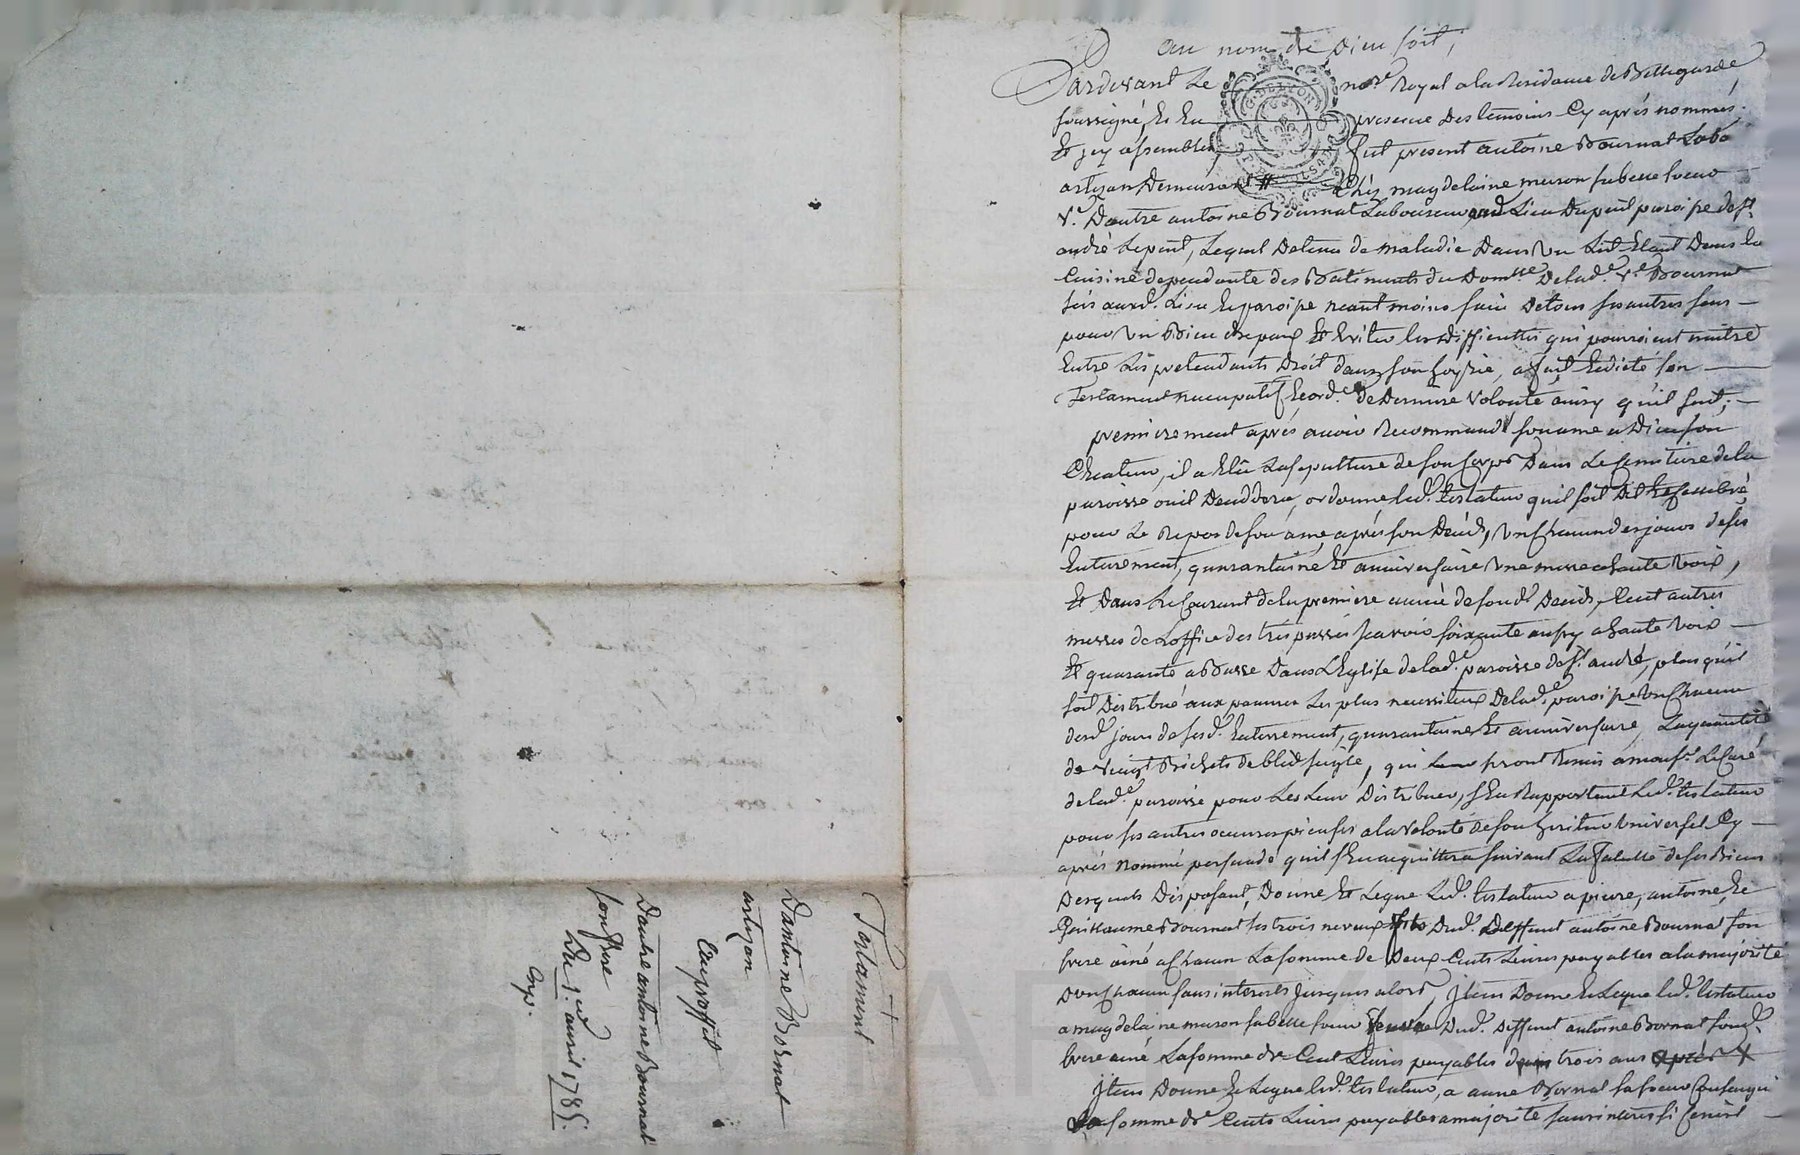 au nom de Dieu soit,
Pardevant Le no.re Royal a la Residance de Bellegarde
soussigné, Et En presence Des temoins Cy aprés nommés.
Et icy assemblés, fut present antoine Bournat Labo
artizan Demeurant chéz magdelaine muson sa belle soeur
V.e Dautre antoine Bournat Laboureur aud. Lieu Dupeil paroisse de S.t
andré Lepeul, Lequel Detenu de maladie Dans Un Lict Etant Dans la
Cuisine dependante des Batiments du Dom.lle De lad.e V.e Bournat
sis aud. Lieu Et paroisse neant moins sain De tous ses autres sens
pour Un Bien de paix Et Eviter les difficultés qui pourroient naitre
Entre Les pretendants Droit dans son hoyrie, a fait Et dicté son
Testament nuncupatif Et ord.ce De Derniere Volonté ainsy qu'il suit;
premierement aprés avoir Recommandé son ame a Dieu son
Createur, il a Elû La sepulture de son Corps Dans Le Cimetiere de la
paroisse ou il Deceddera, ordonne led. testateur qu'il soit Dit Et Celebré
pour Le Repos de son ame, aprés son Decéds, Un Chacun des jours de ses
Enterrement, quarantaine Et anniversaire Une messe a haute Voix,
Et Dans Le Courant de la premiere année de sond. Decéds, Cent autres
messes de L'office des trepassés scavoir soixante aussy a haute Voix
Et quarante a Basse Dans L'Eglise de lad. paroisse de S.t andré, plus qu'il
soit Distribué aux pauvres Les plus necessiteux De lad.e paroisse Un Chacun
desd. jours de sesd. Enterrement, quarantaine Et anniversaire, La quantité
de Vingt Bichets de bled seigle, qui seront Remis a mons.r Le Curé
de lad.e paroisse pour Les Leur Distribuer, s'En Rapportant Led. testateur
pour ses autres oeuvres pieuses a la Volonté de son heritier Universel Cy
aprés Nommé persuadé qu'il s'En acquittera suivant La faculté de ses Biens
Desquels Disposant, Donne Et Legue Led. testateur a pierre, antoine, Et
Guillaume Bournat ses trois neveux fils Dud. Deffunt antoine Bournat son
frere ainé a Chacun La somme de Deux Cents Livres payables a la majorité
D'un Chacun sans interests jusques alors, Item Donne Et Legue led. testateur
a magdelaine muson sa belle soeur Veuve Dud. Deffunt antoine Bornat sond.
frere ainé La somme de Cent Livres payables dans trois ans
Item Donne Et Legue led. testateur, a anne Bornat sa soeur
La somme de Cents Livres payables a majorité sans interests
Testament
Dantoine Bornat
artizan
au proffit
Dautre antoine Bournat
son frere
Du 1.er avril 1785.
Exp.